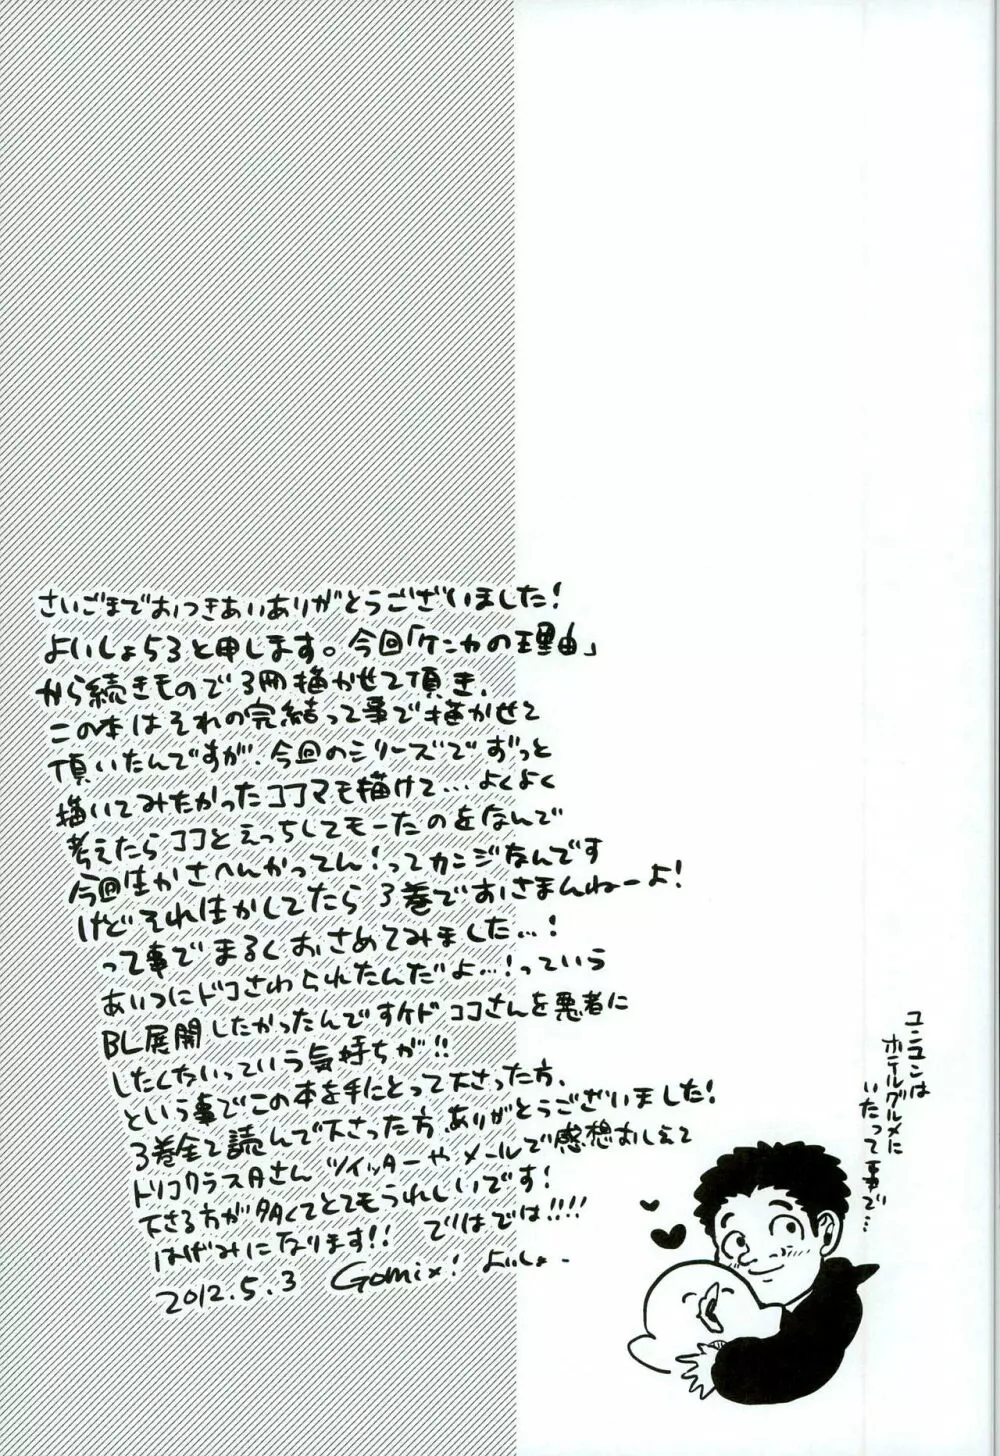 さいごまでおつきあいありがとうございました!
よいしょ53と申します。今回「ケンカの理由」
から続きもので3冊描かせて頂き、
この本はそれの完結って事で描かせて
頂いたんですが、今回のシリーズでずっと
描いてみたかったココマも描けて…よくよく
考えたらココとえっちしてモーたのをなんで
今回生かさへんかってん!ってカンジなんです
けどそれ生かしてたら3巻でおさまんねーよ!
って事でまるくおさめてみました…!
あいつにドコさわられたんだよ…!っていう
BL展開したかったんですケド ココさんを悪者に
したくないっていう気持ちが!!
という事でこの本を手にとって下さった方、
3巻全て読んで下さった方、ありがとうございました!
トリコクラスタさん ツイッターやメールで感想おしえて
下さる方が多くてとてもうれしいです!
はげみになります!! ではでは!!!!
2012.5.3 Gomix! よいしょ.
ユンユンは
ホテルグルメに
いたって事で…